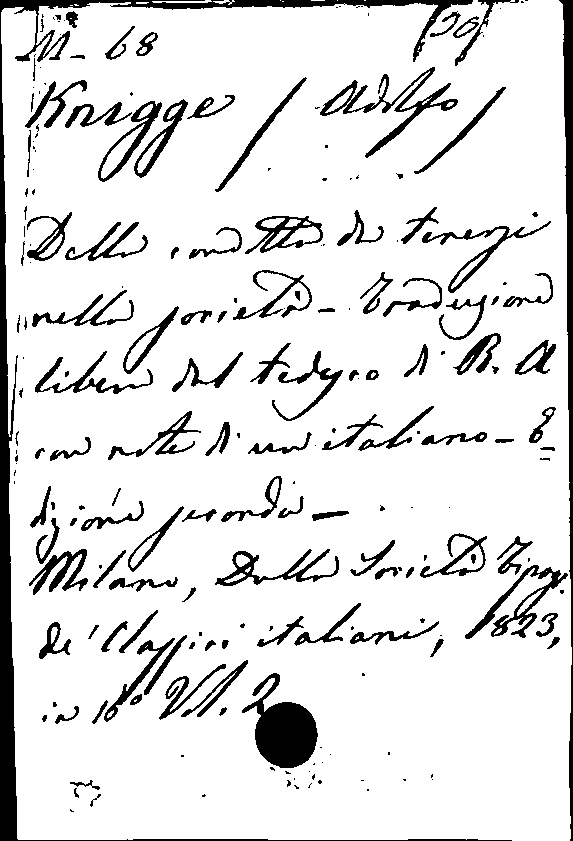 M- 68 (30)
Knigge / Adolfo /
Della condotta da tenersi
nella società - Traduzione
libera dal tedesco di R. A
con note di un italiano - E-
dizione seconda -
Milano, Dalla Società Tipog.
de' Classici italiani, 1823,
in 16° Vol. 2